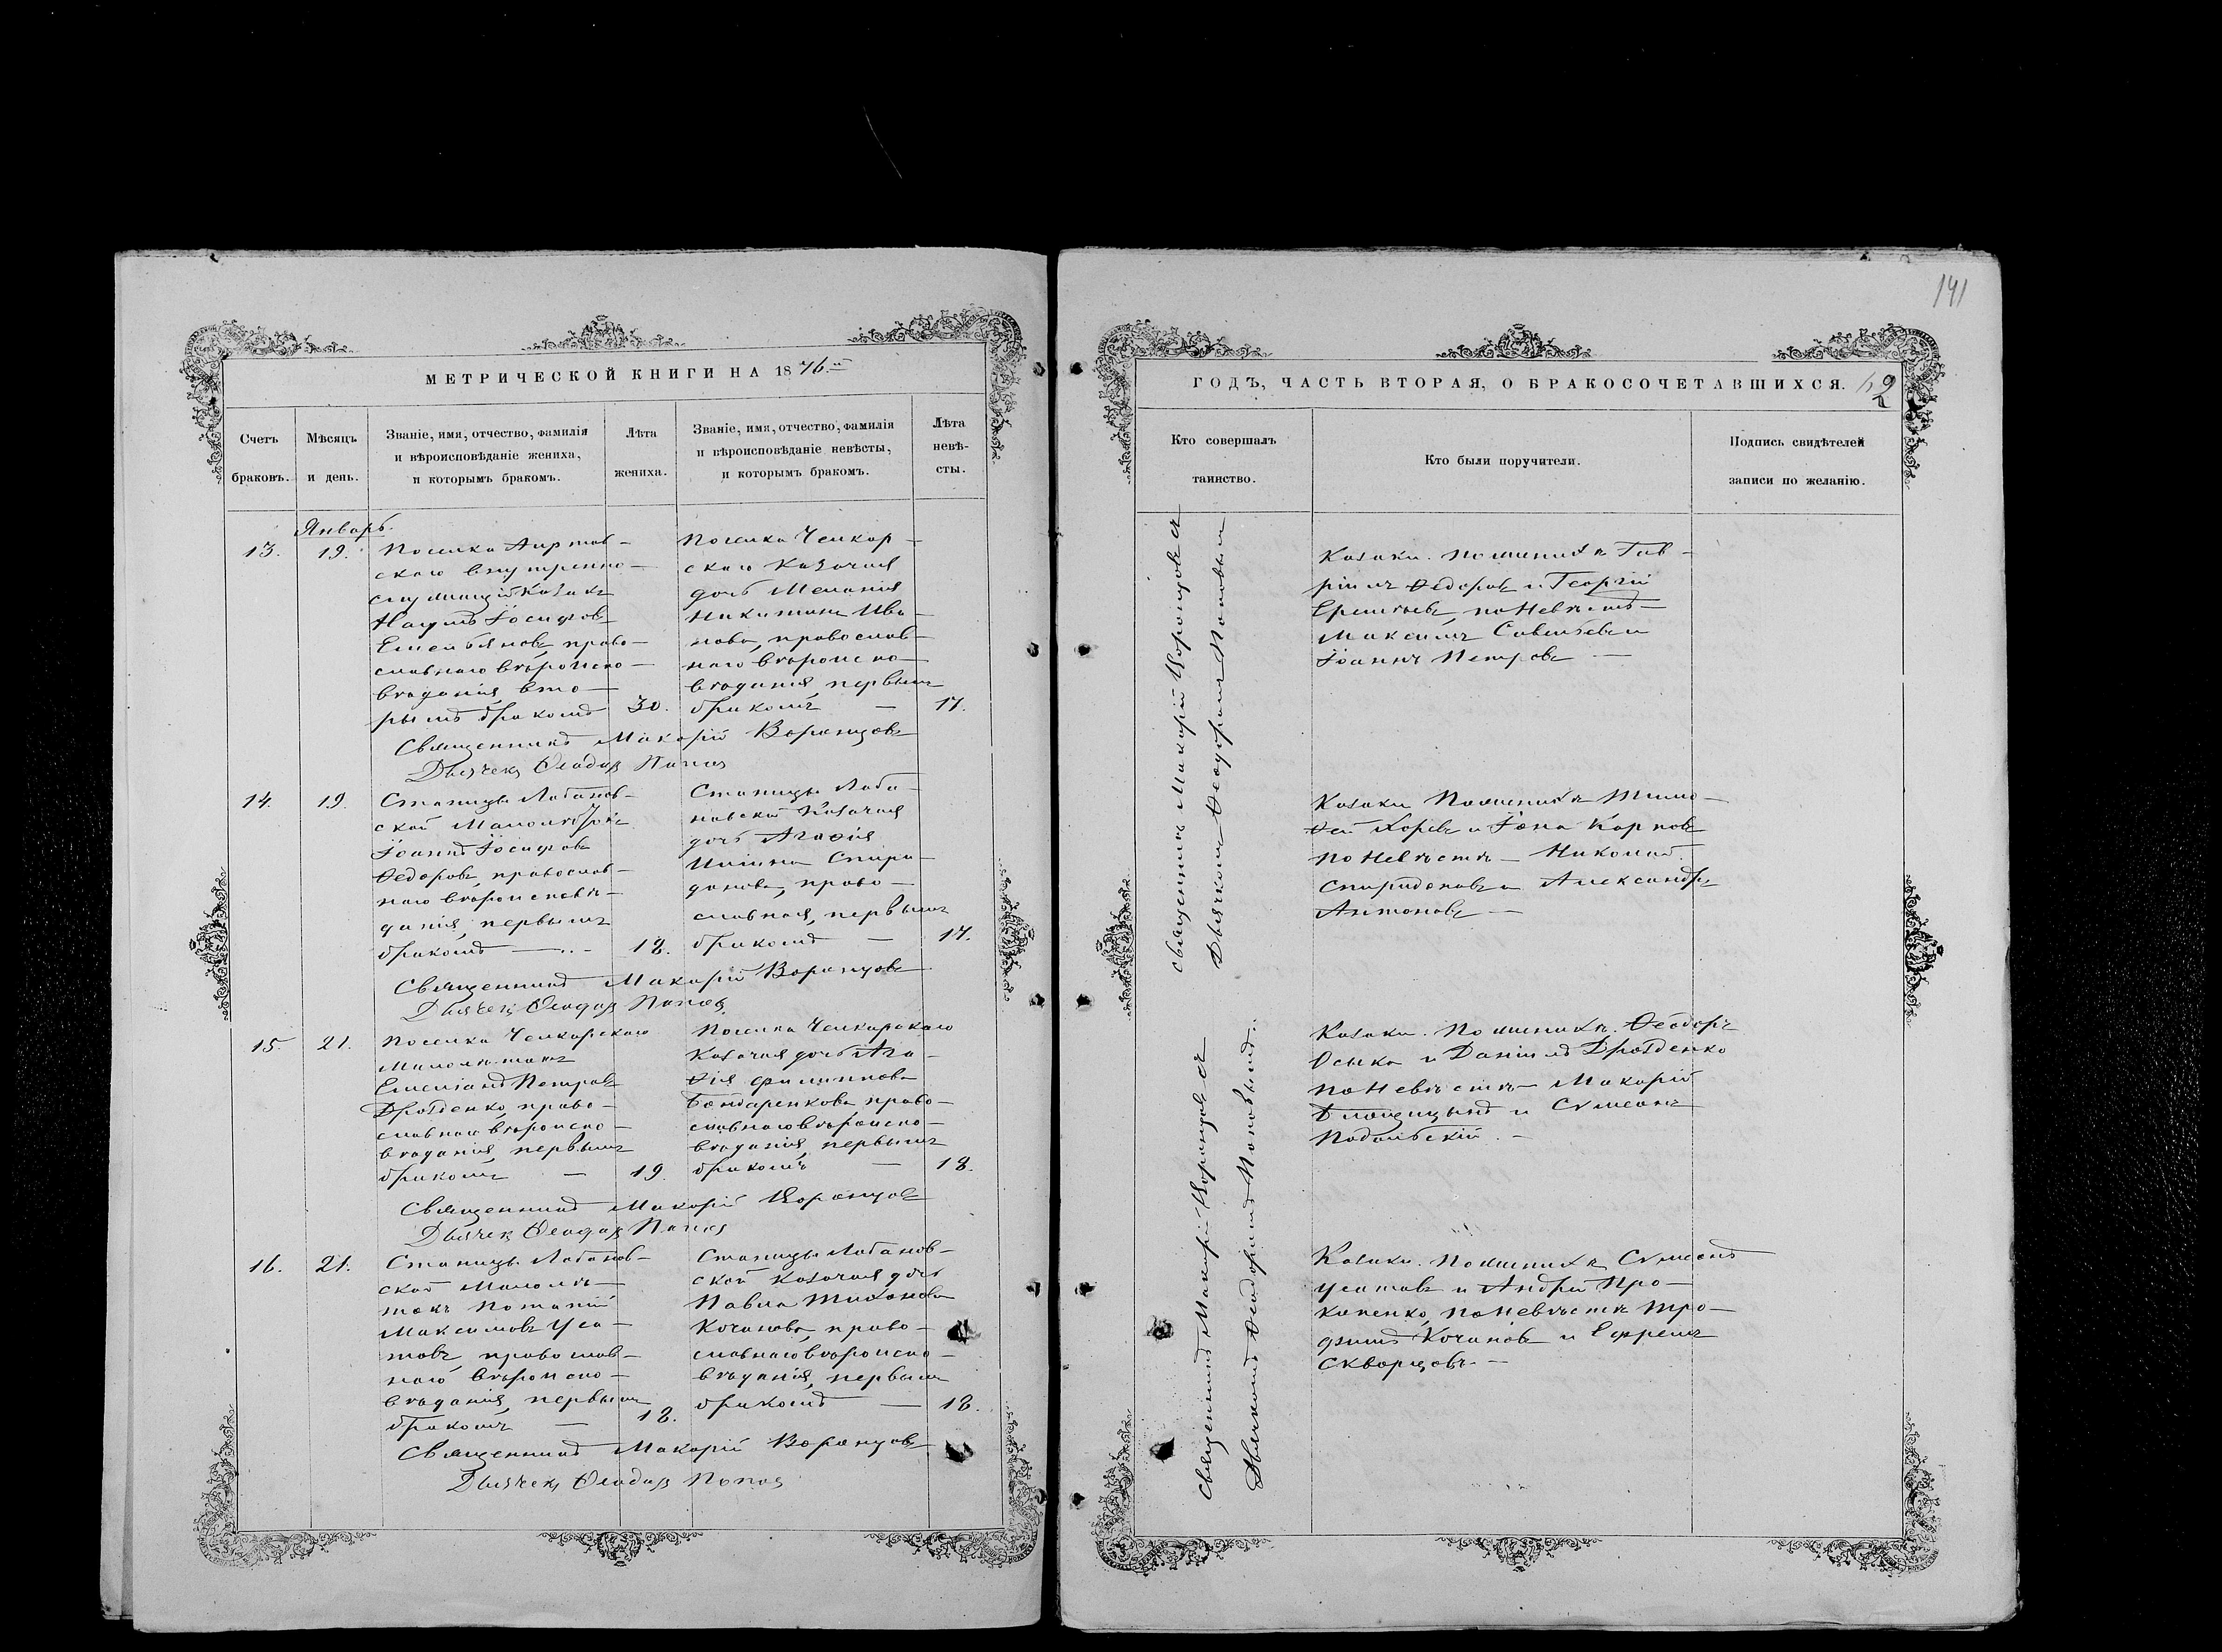 141
МЕТРИЧЕСКОЙ КНИГИ НА 1876
Счетъ браковъ.
Мѣсяцъ и день.
Званіе, имя, отчество, фамилія
и вѣроисповѣданіе жениха,
и которымъ бракомъ.
Лѣта жениха.
Званіе, имя, отчество, фамилія
и вѣроисповѣданіе невѣсты,
и которымъ бракомъ.
Лѣта невѣ-
сты.
Январь.
13.
19.
Поселка Аиртав-
скаго внутренно-
служащій Козакъ
Наумъ Іосифовъ
Емельяновъ, право-
славнаго вѣроиспо-
вѣданія, вто-
рымъ бракомъ
30.
Поселка Челкар-
скаго Казачья
дочь Меланія
Никитина Ива-
нова, православ-
наго вѣроиспо-
вѣданія, первымъ
бракомъ —
17.
Священникъ Макарій Воронцовъ
Дьячекъ Ѳеодоръ Поповъ
14.
19.
Станицы Лобанов-
ской Малолѣтокъ
Іоаннъ Іосифовъ
Ѳедоровъ, православ-
наго вѣроисповѣ-
данія, первымъ
бракомъ —
18.
Станицы Лоба-
новской Козачья
дочь Агаѳія
Ильина Спири-
донова, право-
славная, первымъ
бракомъ —
17.
Священникъ Макарій Воронцовъ
Дьячекъ Ѳеодоръ Поповъ
15.
21.
Поселка Челкарскаго
Малолѣтокъ
Емеліанъ Петровъ
Дрозденко, право-
славнаго вѣроиспо-
вѣданія, первымъ
бракомъ —
19.
Поселка Челкарскаго
Козачья дочь Ага-
ѳія Филиппова
Бондаренкова право-
славнаго вѣроиспо-
вѣданія, первымъ
бракомъ —
18.
Священникъ Макарій Воронцовъ
Дьячекъ Ѳеодоръ Поповъ
16.
21.
Станицы Лобанов-
ской Малолѣ-
токъ Потапій
Максимовъ Уса-
товъ, православ-
наго вѣроиспо-
вѣданія, первымъ
бракомъ —
18.
Станицы Лобанов-
ской Козачья дочь
Павла Тихонова
Кочанова, право-
славнаго вѣроиспо-
вѣданія, первымъ
бракомъ —
18.
Священникъ Макарій Воронцовъ
Дьячекъ Ѳеодоръ Поповъ
ГОДЪ, ЧАСТЬ ВТОРАЯ, О БРАКОСОЧЕТАВШИХСЯ.
2
Кто совершалъ
таинство.
Кто были поручители.
Подпись свидѣтелей
записи по желанію.
Священникъ Макарій Воронцовъ съ
Дьячкомъ Ѳеодоромъ Поповымъ
Козаки. По женихѣ Гав-
ріилъ Ѳедоровъ и Георгій
Ерентьевъ, по Невѣстѣ —
Максимъ Савельевъ и
Іоаннъ Петровъ —
Козаки По женихѣ Тимо-
ѳей Хоревъ и Іона Карповъ
по Невѣстѣ — Николай
Спиридоновъ и Александръ
Антоновъ —
Священникъ Макарій Воронцовъ съ
Дьячкомъ Ѳеодоромъ Поповымъ.
Козаки. По женихѣ. Ѳеодоръ
Осыка и Даніилъ Дрозденко
по Невѣстѣ — Макарій
и Сѵмеонъ
Подольскій. —
Козаки. По женихѣ Сѵмеонъ
Усатовъ и Андрей Про-
копенко, по Невѣстѣ Тро-
фимъ Кочановъ и Ефремъ
Скворцовъ. —